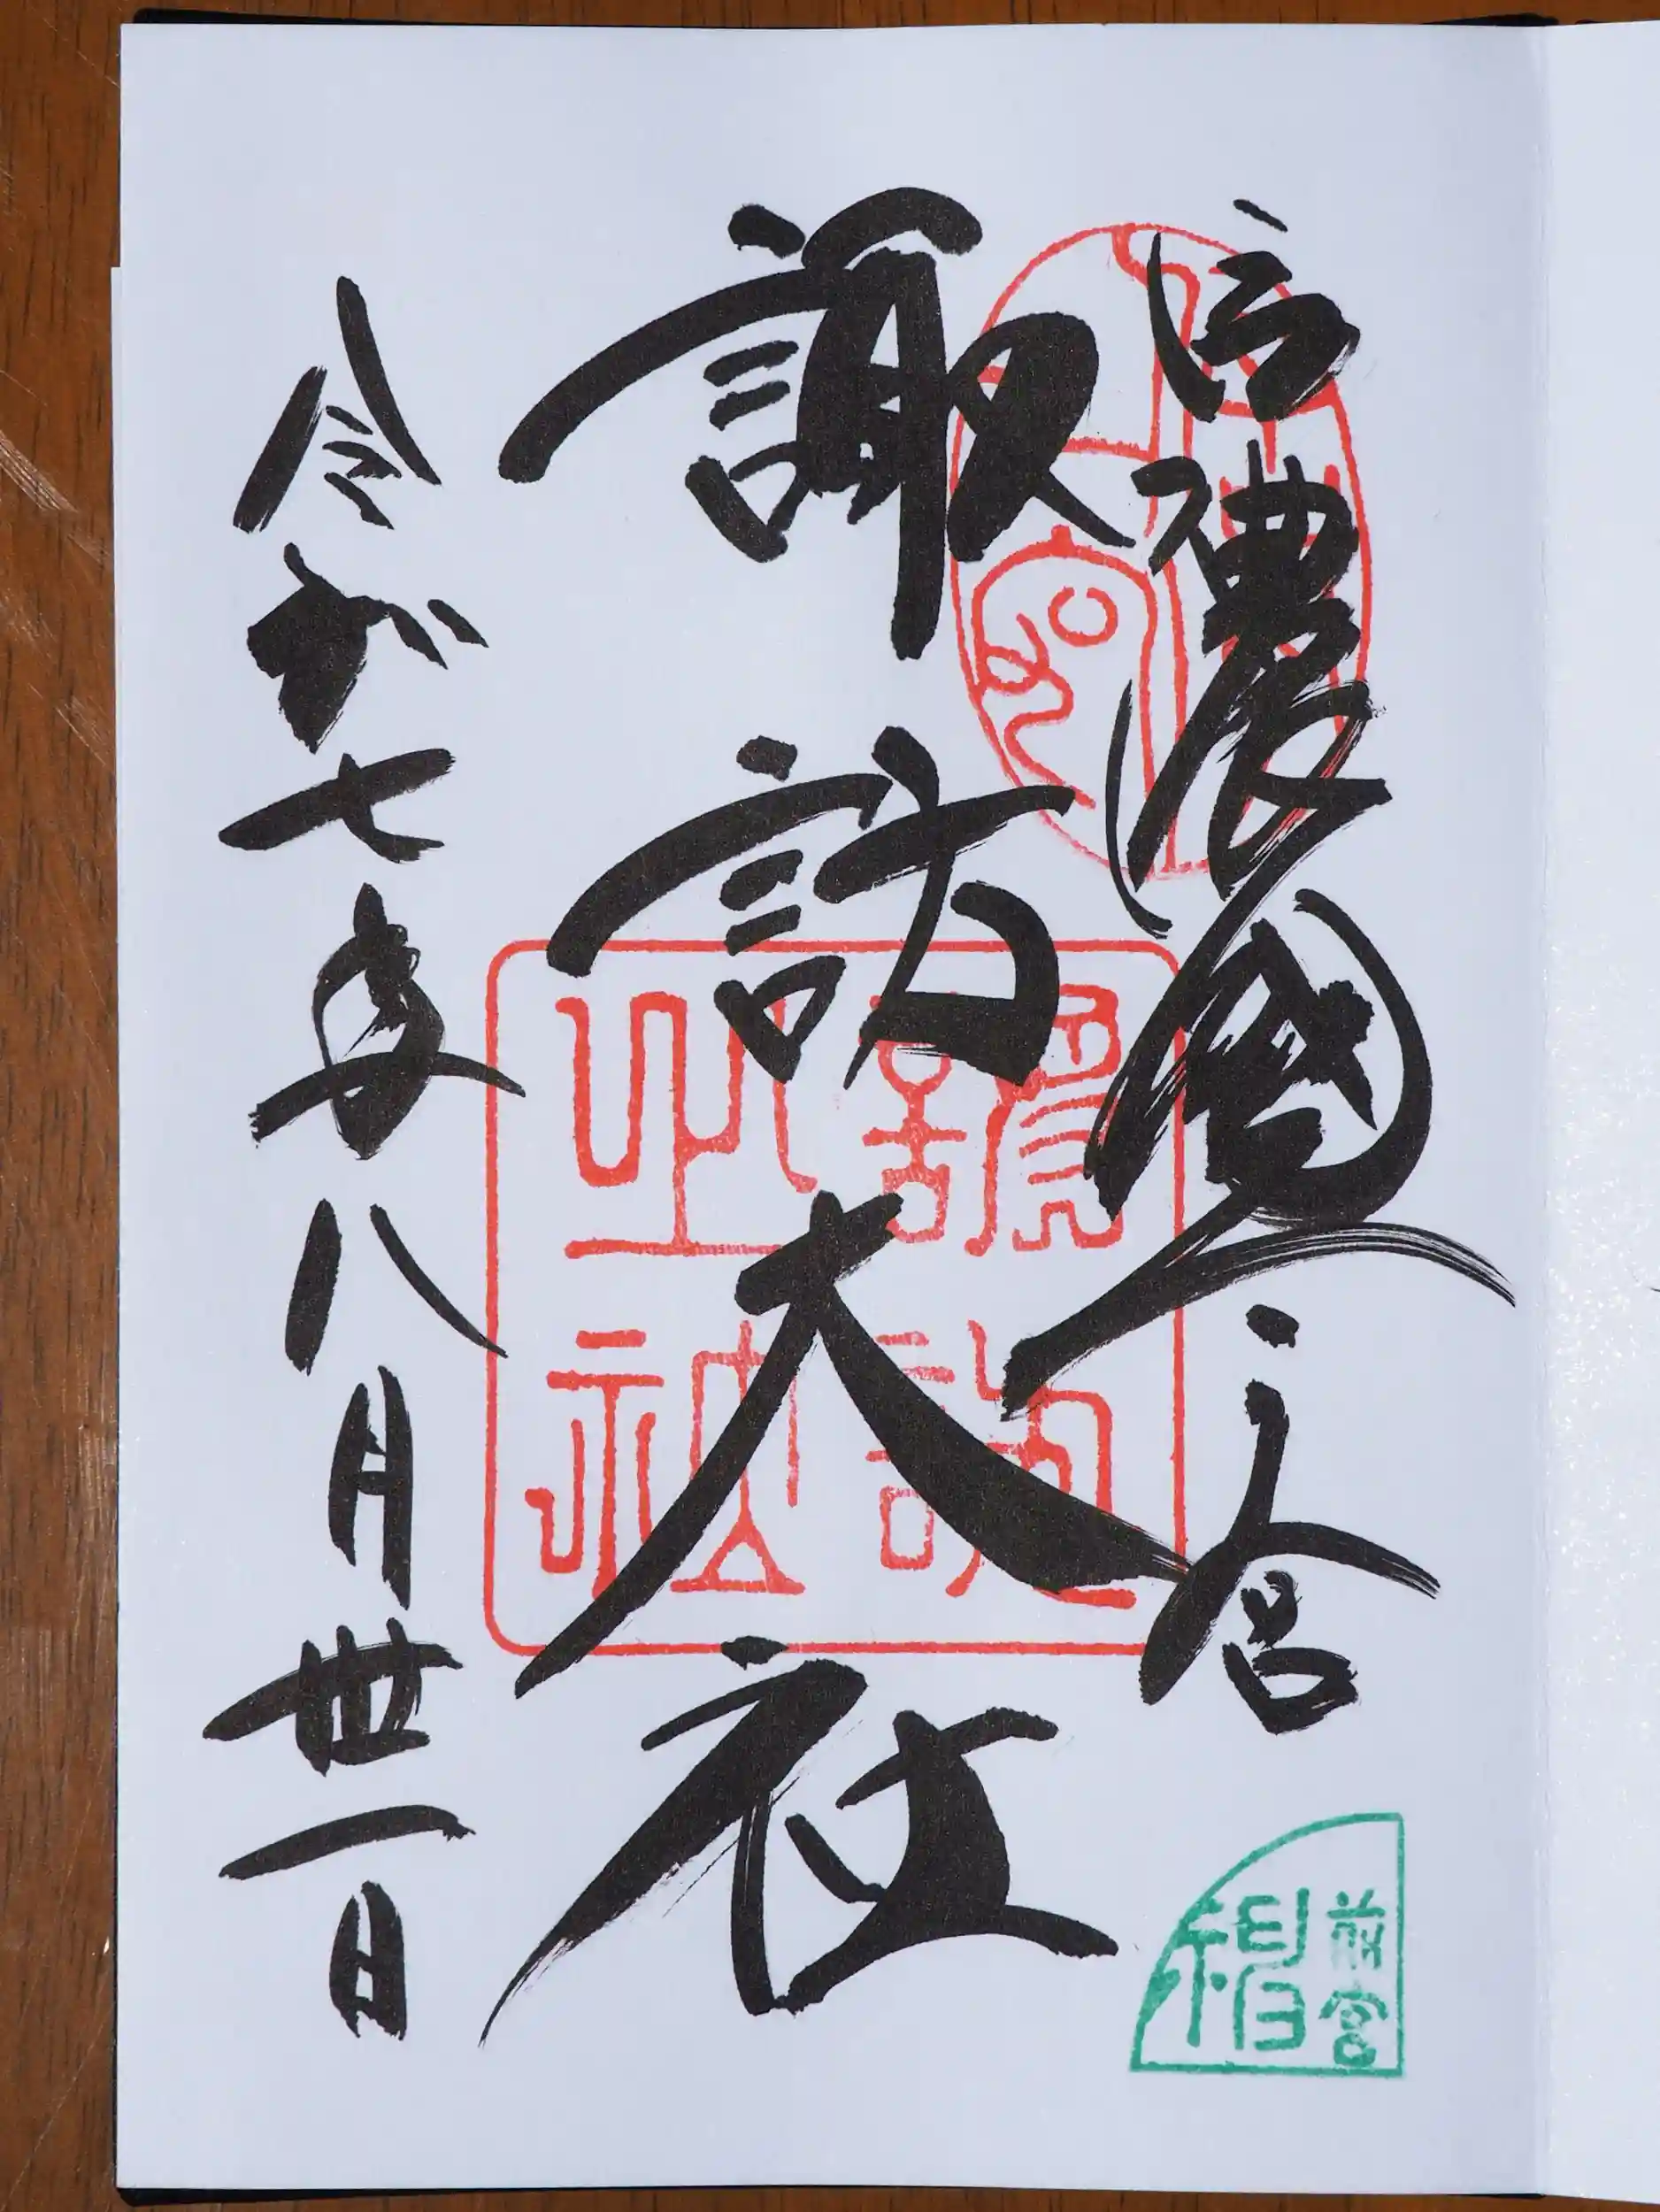 信濃國一之宮
諏訪大社
令和七年八月丗一日
前宮